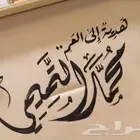 هدية إلى العم
محمد التميمي